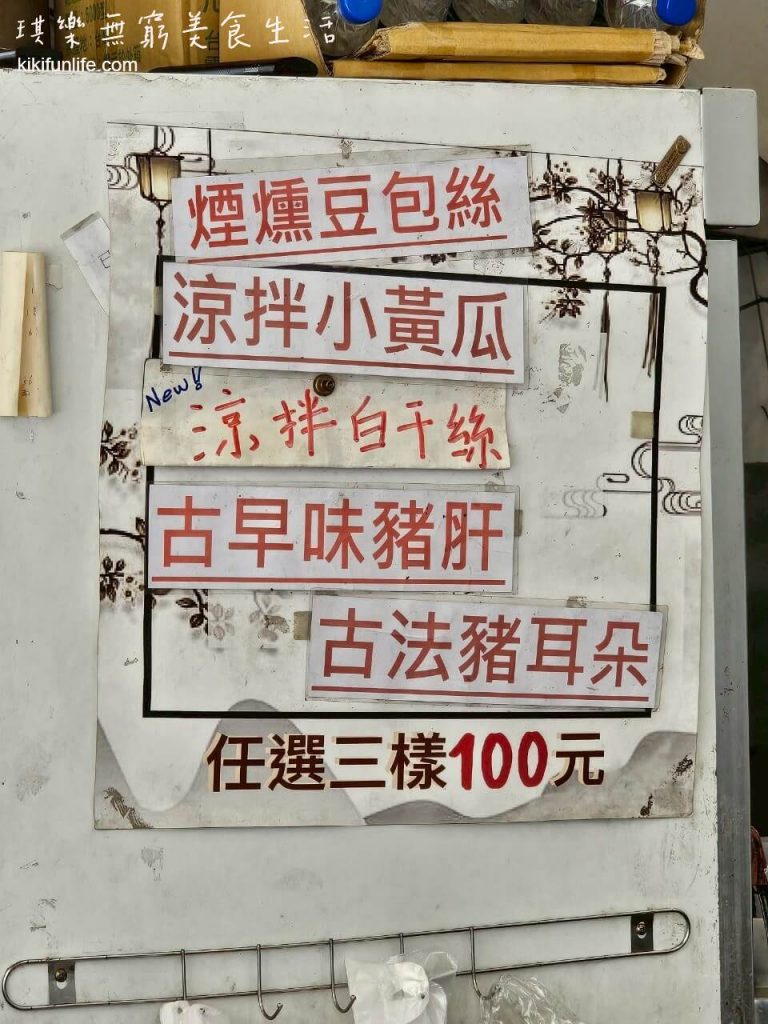 琪樂無窮美食生活
kikifunlife.com
煙燻豆包絲
涼拌小黃瓜
New!!
涼拌白干絲
古早味豬肝
古法豬耳朵
任選三樣100元